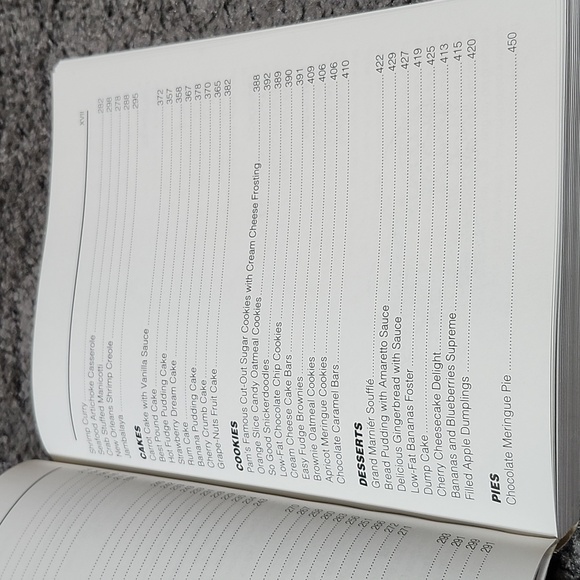 xvii
Curry 282
Seafood Artichoke Casserole 298
Crab Stuffed Manicotti 278
New Orleans Shrimp Creole 288
Jambalaya 295
CAKES
Carrot Cake with Vanilla Sauce 372
Best Pound Cake 357
Hot Fudge Pudding Cake 358
Strawberry Dream Cake 367
Rum Cake 378
Banana Pudding Cake 370
Cherry Crumb Cake 365
Grape-Nuts Fruit Cake 382
COOKIES
Pam's Famous Cut-Out Sugar Cookies with Cream Cheese Frosting 388
Orange Slice Candy Oatmeal Cookies 392
So Good Snickerdoodles 389
Low-Fat Chocolate Chip Cookies 390
Cream Cheese Cake Bars 391
Easy Fudge Brownies 409
Brownie Oatmeal Cookies 406
Apricot Meringue Cookies 406
Chocolate Caramel Bars 410
DESSERTS
Grand Marnier Soufflé 422
Bread Pudding with Amaretto Sauce 429
Delicious Gingerbread with Sauce 427
Low-Fat Bananas Foster 419
Dump Cake 425
Cherry Cheesecake Delight 413
Bananas and Blueberries Supreme 415
Filled Apple Dumplings 420
PIES
Chocolate Meringue Pie 450